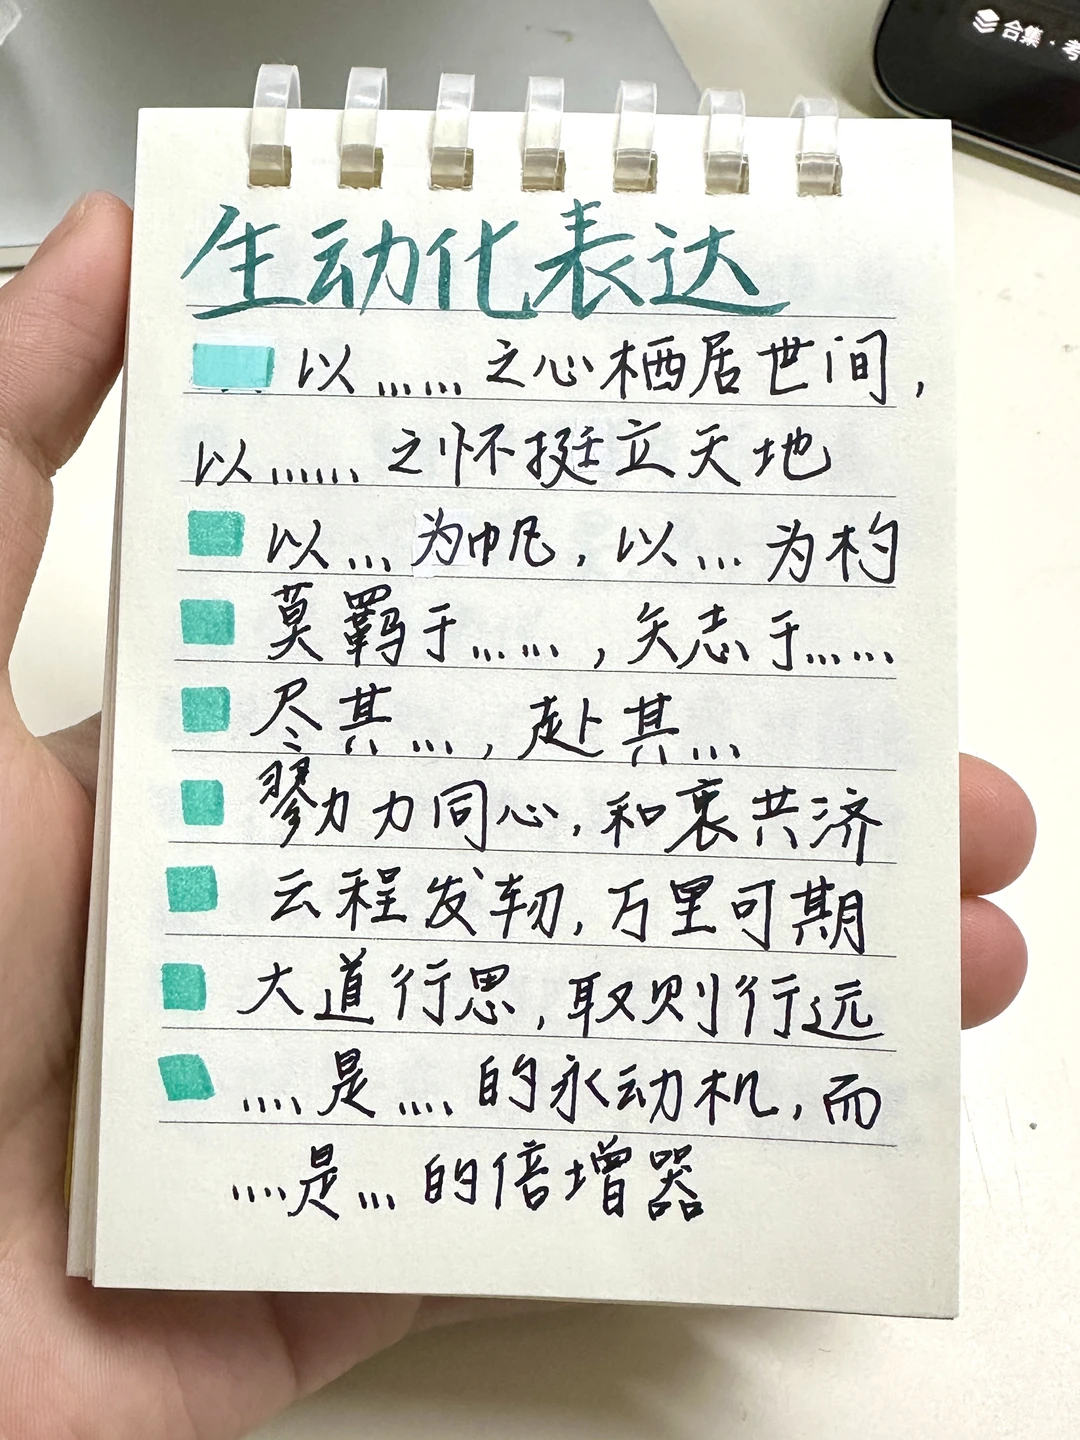 合集·考
生动化表达
以……之心栖居世间，
以……之怀挺立天地
以…为帆，以…为杓
莫羁于……，矢志于……
尽其…，赴其…
勠力同心，和衷共济
云程发轫，万里可期
大道行思，取则行远
….是….的永动机，而
….是…的倍增器